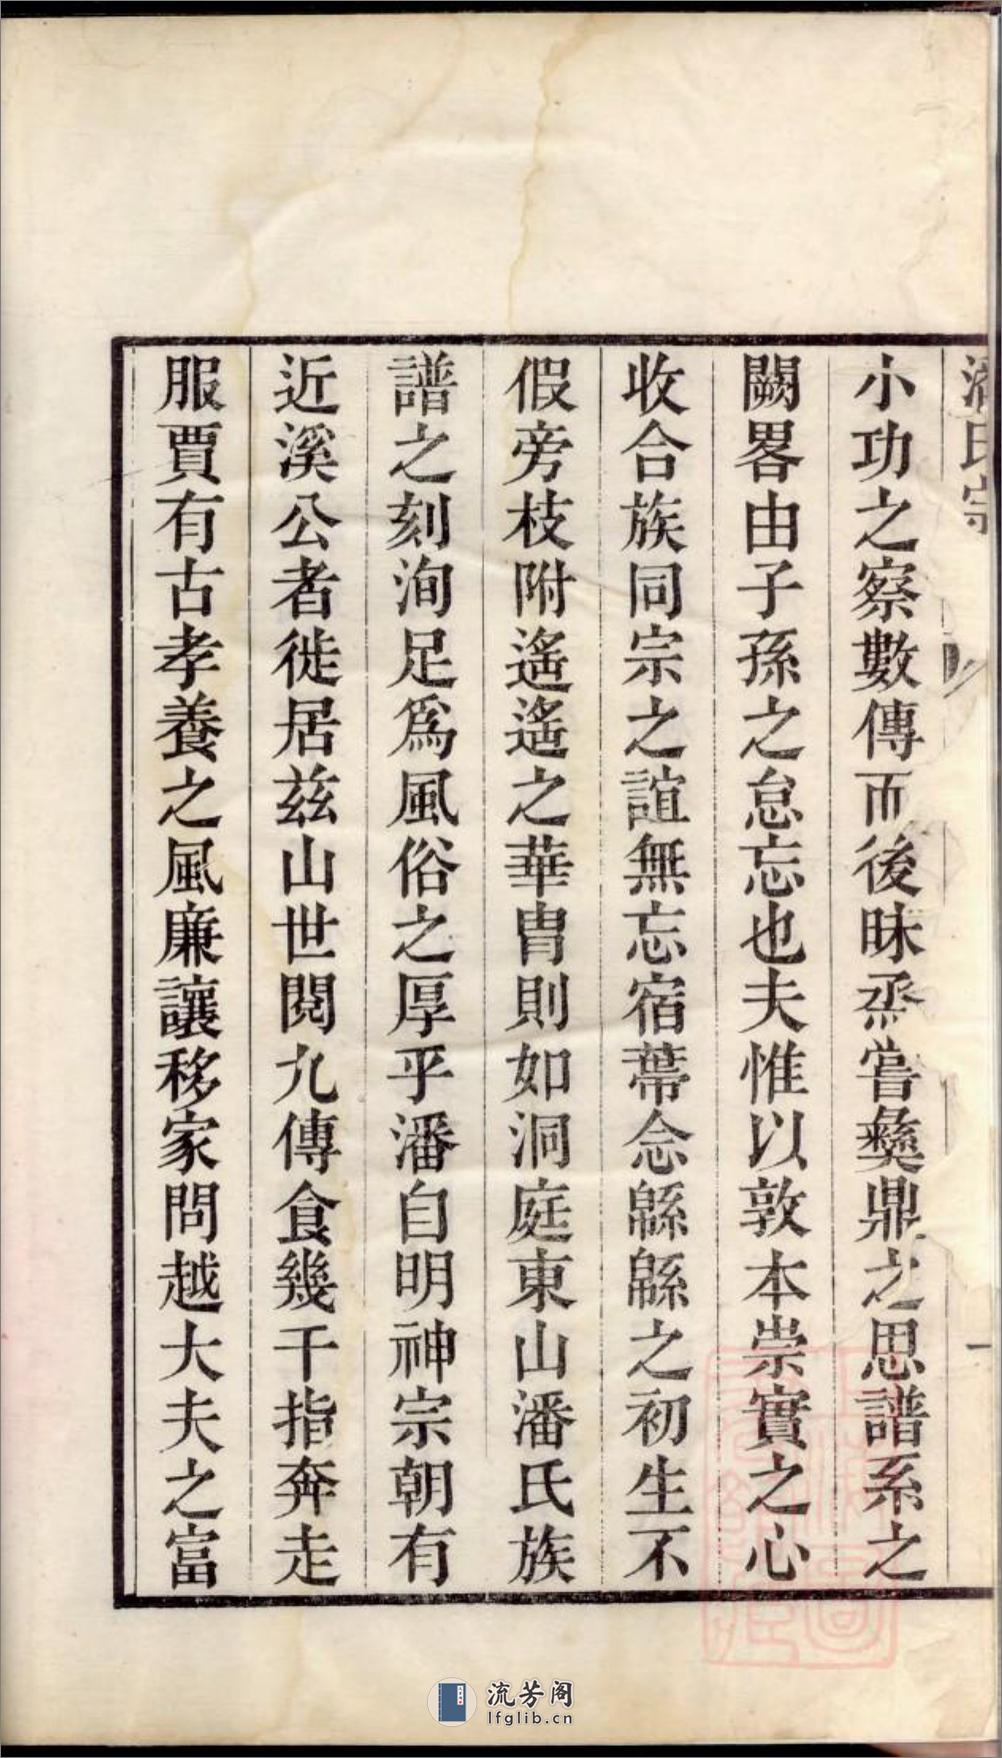 小功之察數傳而後昧烝嘗彝鼎之思譜系之
闕畧由子孫之怠忘也夫惟以敦本崇實之心
收合族同宗之誼無忘宿蔕念緜緜之初生不
假旁枝附遙遙之華胄則如洞庭東山潘氏族
譜之刻洵足爲風俗之厚乎潘自明神宗朝有
近溪公者徙居兹山世閱九傳食幾千指奔走
服賈有古孝養之風廉讓移家問越大夫之富
流芳阁
lfglib.cn